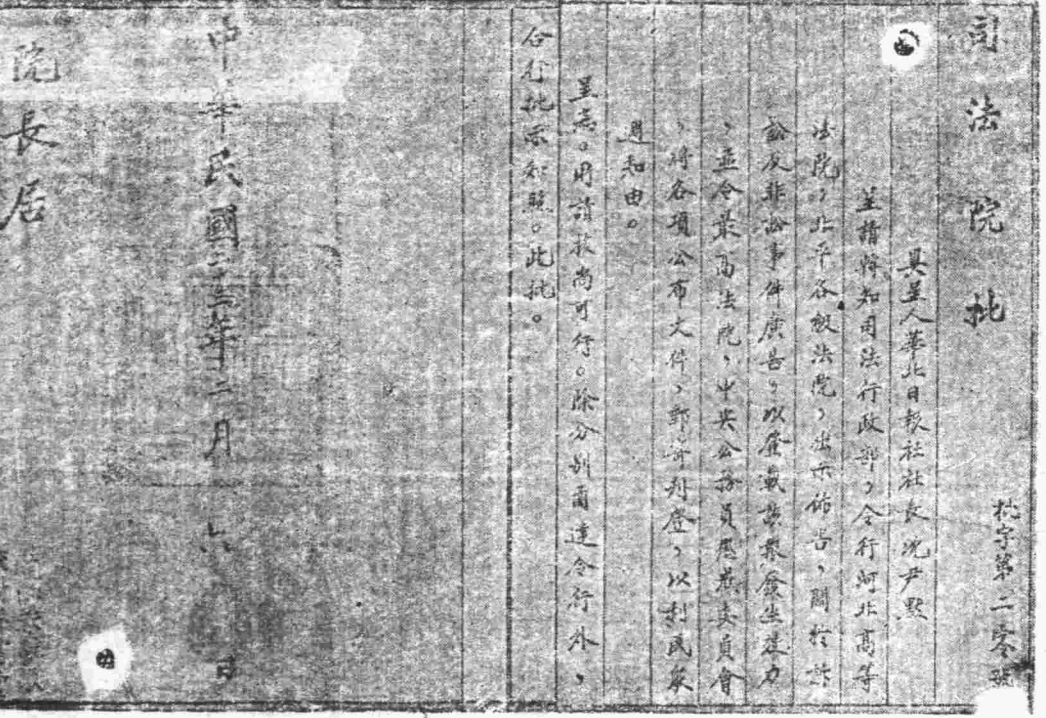 司法院批
批字第二零號
具呈人華北日報社社長沈尹默
呈請轉知司法行政部，令行河北高等
法院，北平各級法院，出示佈告，關於訴
訟及非訟事件廣告，以登載該報發生效力
，並令最高法院，中央公務員懲戒委員會
，將各項公布文件，郵寄刊登，以利民眾
週知由。
呈悉。所請核尚可行。除分別函達令行外，
合行批示知照。此批。
中華民國二十三年二月六日
院長居